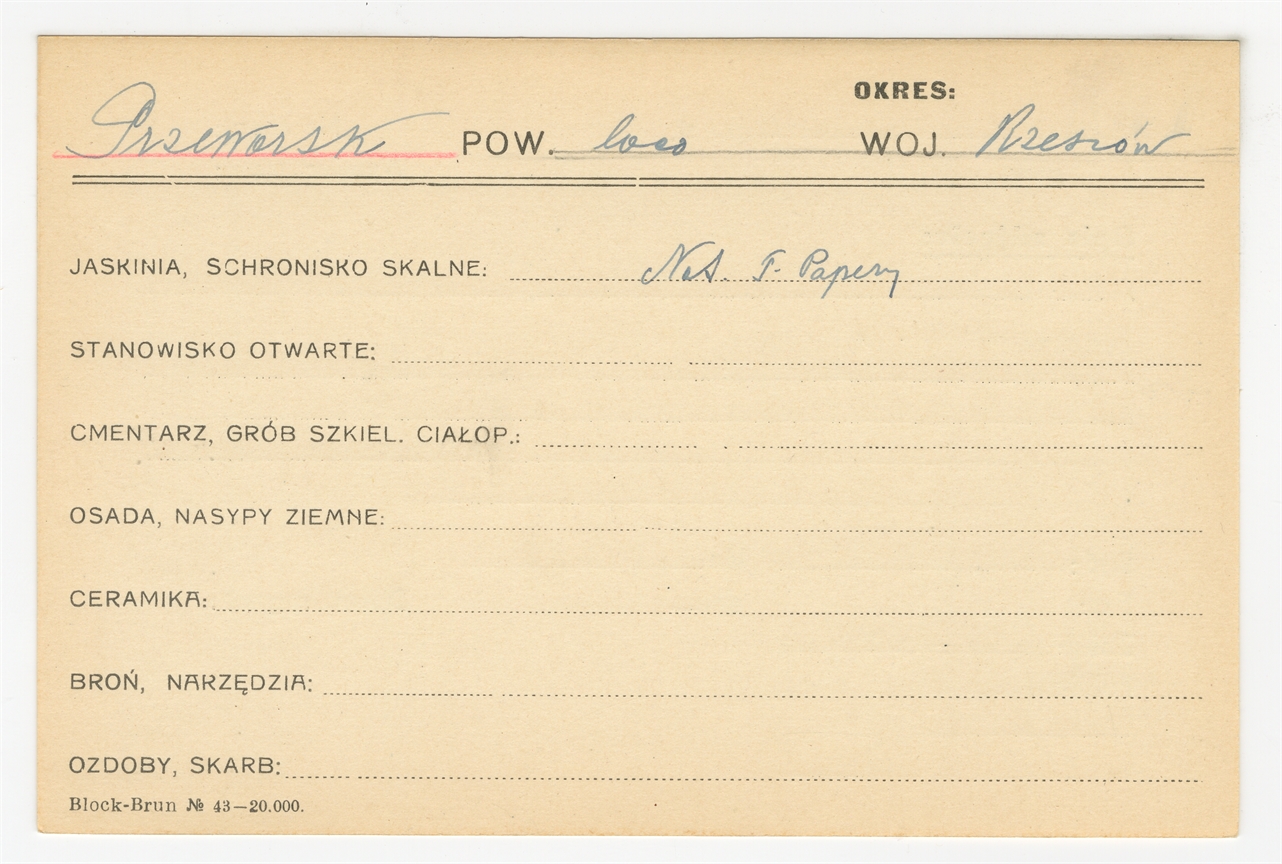 OKRES:
Przeworsk POW. loco WOJ. Rzeszów
JASKINIA, SCHRONISKO SKALNE: Not. T. Papery
STANOWISKO OTWARTE:
CMENTARZ, GRÓB SZKIEL. CIAŁOP.:
OSADA, NASYPY ZIEMNE:
CERAMIKA:
BROŃ, NARZĘDZIA:
OZDOBY, SKARB:
Block-Brun № 43—20.000.